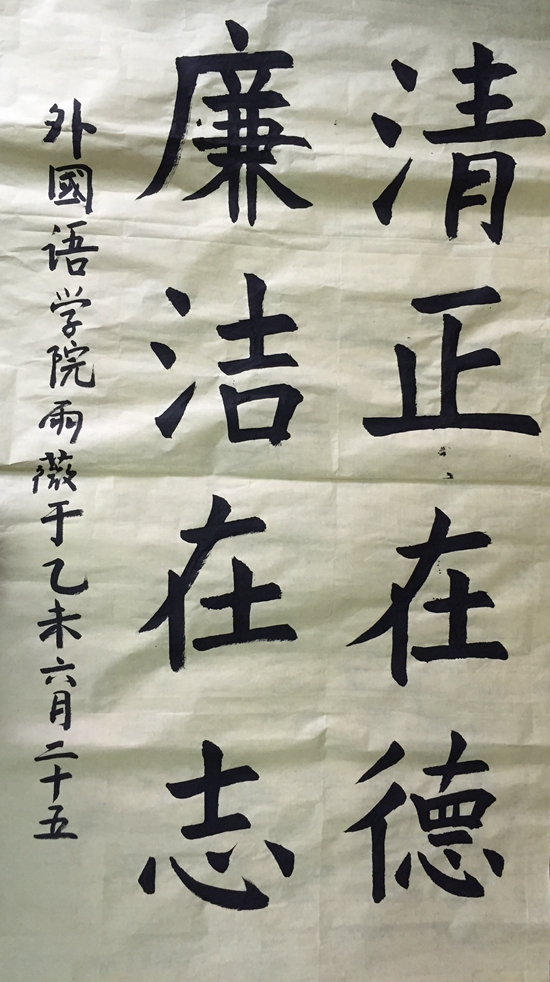 清正在德
廉洁在志
外國语学院雨薇于乙未六月二十五